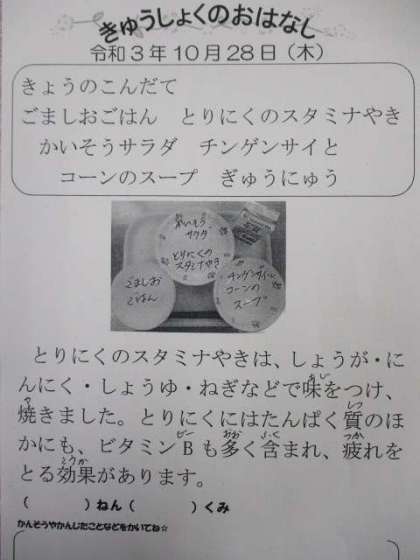 きゅうしょくのおはなし
令和3年10月28日（木）
きょうのこんだて
ごましおごはん　とりにくのスタミナやき
かいそうサラダ　チンゲンサイと
コーンのスープ　ぎゅうにゅう
かいそう
サラダ
とりにくの
スタミナやき
ごましお
ごはん
チンゲンサイと
コーンの
スープ
とりにくのスタミナやきは、しょうが・に
んにく・しょうゆ・ねぎなどで味をつけ、
焼きました。とりにくにはたんぱく質のほ
かにも、ビタミンBも多く含まれ、疲れを
とる効果があります。
（　　　）ねん（　　　　）くみ
かんそうやかんじたことなどをかいてね☆